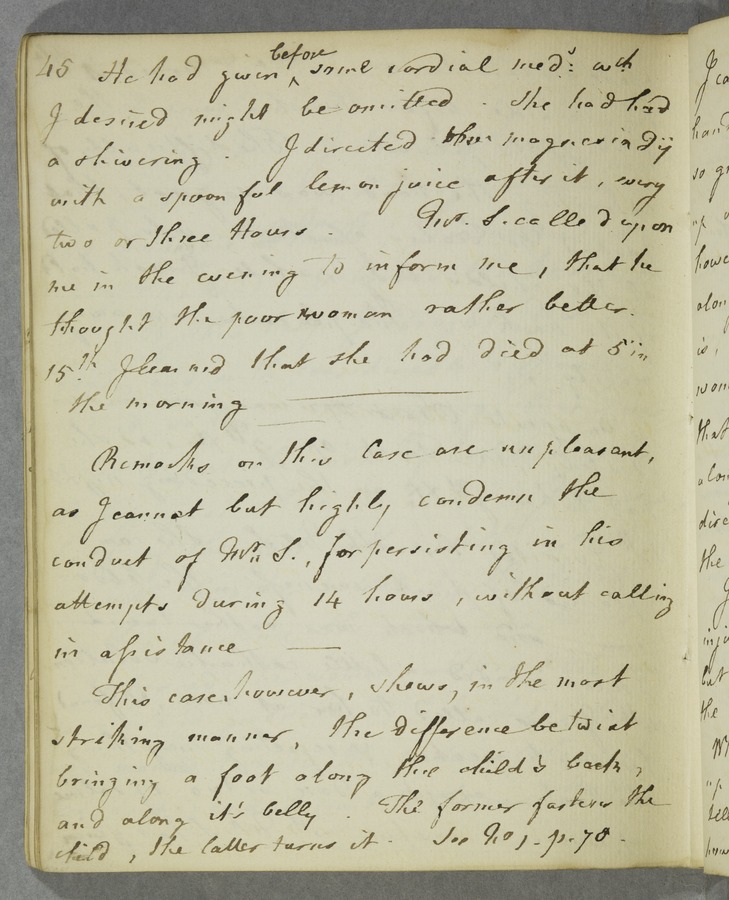 45 He had given before some cordial med.s: wch
I desired might be omitted. She had had
a shivering. I directed magnesia ʒij
with a spoonful lemon juice after it, every
two or three Hours. Mr. S. called upon
me in the evening to inform me, that he
thought the poor woman rather better.
15th I learned that she had died at 5 in
the morning
Remarks on this Case are unpleasant,
as I cannot but highly condemn the
conduct of Mr. S., for persisting in his
attempts during 14 hours, without calling
in assistance
This case however, shews, in the most
striking manner, the difference betwixt
bringing a foot along the child's back,
and along it's belly. The former fastens the
child, the latter turns it. See No 1. p. 70.
hand
so
howe
is,
that
dire
the
but
the